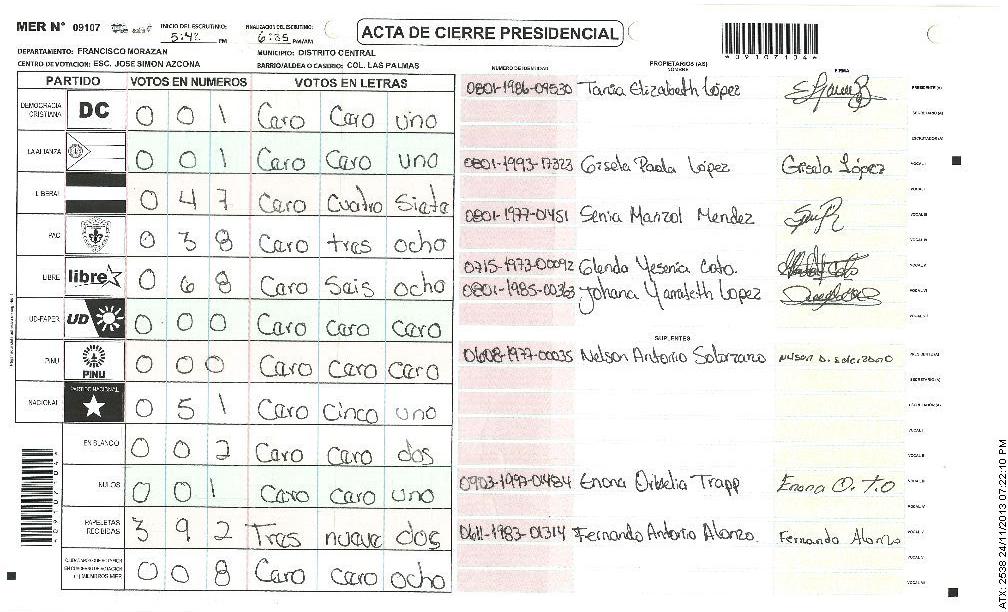 MER N° 09107
INICIO DEL ESCRUTINIO: 5:42 PM
FINALIZACION DEL ESCRUTINIO: 6:35 PM/AM
ACTA DE CIERRE PRESIDENCIAL
*09107134*
DEPARTAMENTO: FRANCISCO MORAZAN
MUNICIPIO: DISTRITO CENTRAL
CENTRO DE VOTACION: ESC. JOSE SIMON AZCONA
BARRIO/ALDEA O CASERIO: COL. LAS PALMAS
PARTIDO VOTOS EN NUMEROS VOTOS EN LETRAS
DEMOCRACIA CRISTIANA DC 0 0 1 Caro Caro uno
LA ALIANZA 0 0 1 Caro Caro uno
LIBERAL 0 4 7 Caro Cuatro Siete
PAC 0 3 8 Caro tres ocho
LIBRE libre 0 6 8 Caro Sais ocho
UD-FAPER UD 0 0 0 Caro Caro caro
PINU PINU 0 0 0 Caro Caro caro
NACIONAL PARTIDO NACIONAL 0 5 1 Caro Cinco uno
EN BLANCO 0 0 2 Caro caro dos
NULOS 0 0 1 Caro caro uno
PAPELETAS RECIBIDAS 3 9 2 Tres nueve dos
0 0 8 Caro caro ocho
NUMERO DE IDENTIDAD PROPIETARIOS (AS) NOMBRE FIRMA
0801-1986-09530 Tania Elizabeth López PRESIDENTE (A)
SECRETARIO (A)
ESCRUTADOR (A)
0801-1993-17323 Gisela Paola López Gisela López VOCAL I
VOCAL II
0801-1977-0451 Senia Marizol Mendez VOCAL III
VOCAL IV
0715-1973-00092 Glenda Yesenia Coto. VOCAL V
0801-1985-00363 Johana Yamileth Lopez VOCAL VI
SUPLENTES
0608-1977-00035 Nelson Antonio Solorzano
SECRETARIO (A)
ESCRUTADOR (A)
VOCAL I
VOCAL II
0903-1997-01484 Enona Oribelia Trapp VOCAL III
VOCAL IV
0611-1983-01314 Fernando Antonio Alonzo. Fernando Alonzo VOCAL V
VOCAL VI
ATX: 2538 24/11/2013 07:22:10 PM